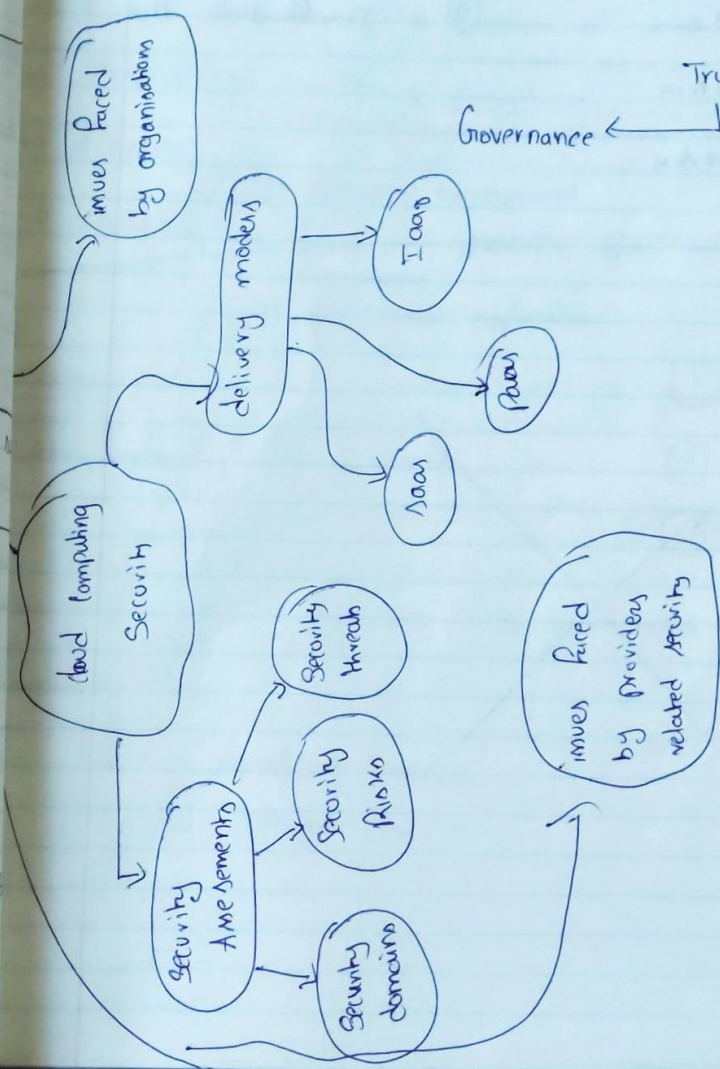 Cloud Computing
Security
issues faced
by organisations
delivery models
IaaS
PaaS
SaaS
Security
Assesements
Security
threats
Security
Risks
Security
domains
issues faced
by providers
related security
Governance
Tru